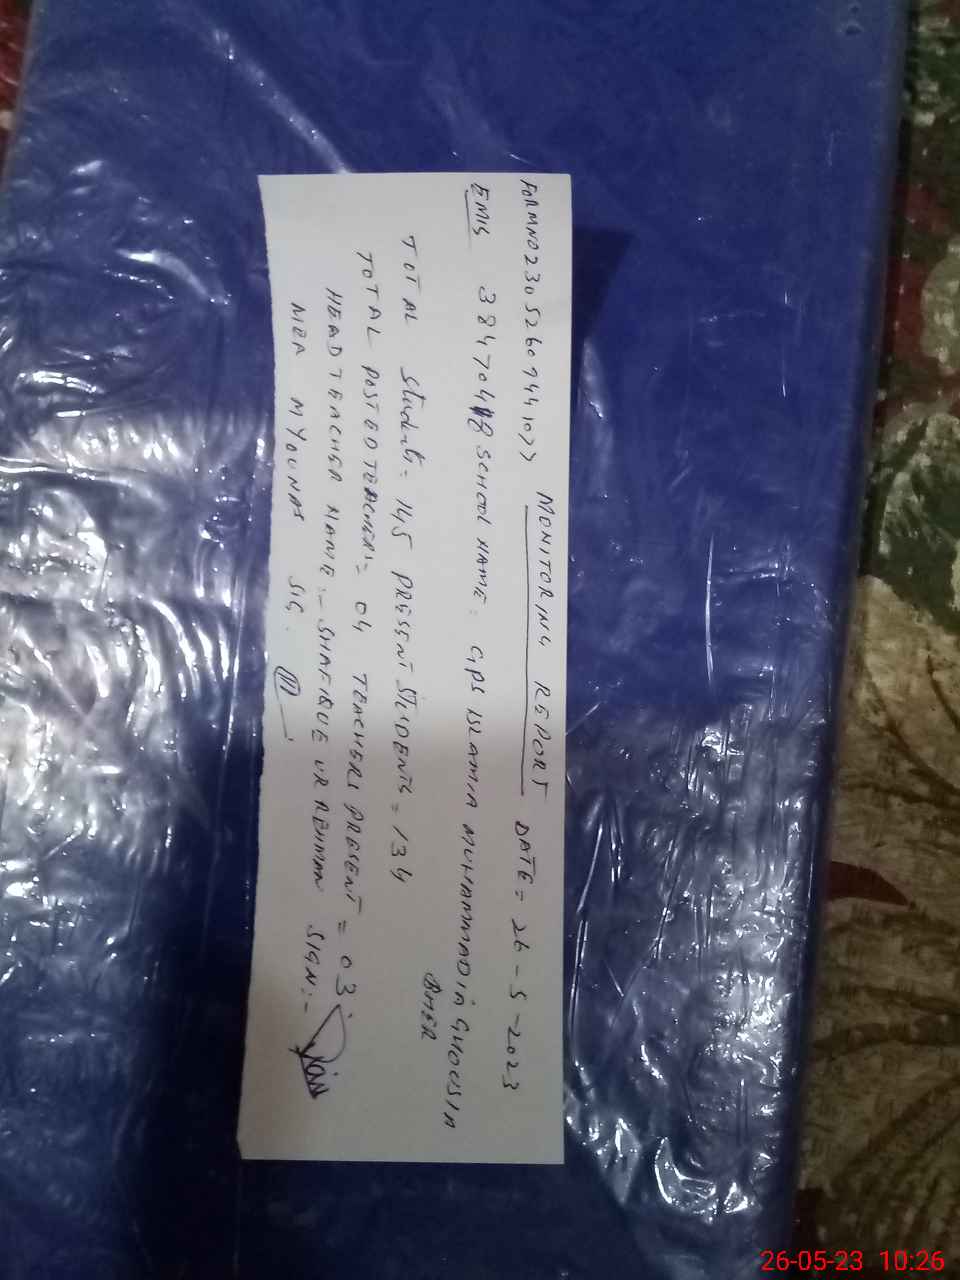 MONITORING REPORT
FORMNO23052609441077 DATE = 26-5-2023
EMIS 38470418 SCHOOL NAME: GPS ISLAMIA MUHAMMADIA GHOUSIA
BHER
TOTAL Students = 145 PRESENT STUDENTS = 134
TOTAL POSTED TEACHERS = 04 TEACHERS PRESENT = 03
HEAD TEACHER NAME:- SHAFIQUE UR REHMAN SIGN:-
MEA M YOUNAS SIG.
26-05-23 10:26